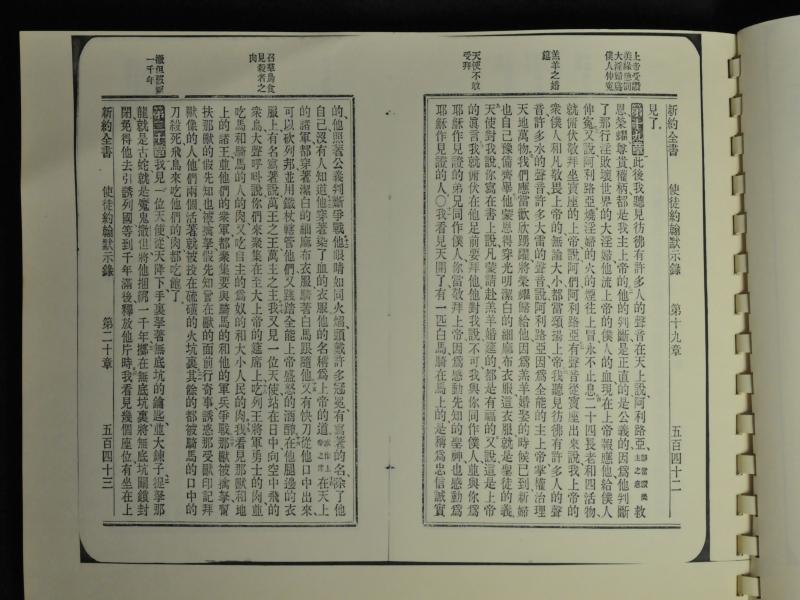 新約全書 使徒約翰默示錄 第十九章 五百四十二
見了。
第十九章 此後我聽見彷彿有許多人的聲音在天上說、阿利路亞、救
恩榮耀尊貴權柄都是我主上帝的、他的判斷是正直的是公義的、因爲他判斷
了那行淫敗壞世界的大淫婦、他流上帝的僕人的血、現在上帝報應他、給僕人
伸冤、又說阿利路亞、燒淫婦的火的煙往上冒、永不止息、二十四長老和四活物、
就俯伏敬拜坐寶座的上帝、說阿們阿利路亞、有聲音從寶座出來說、我上帝的
衆僕人、和凡敬畏上帝的、無論大小、都當頌揚上帝、我聽見彷彿有許多人的聲
音、許多水的聲音、許多大雷的聲音、說阿利路亞、因爲全能的主上帝掌權治理
天地萬物、我們應當歡欣踴躍、將榮耀歸給他、因爲羔羊婚娶的時候已到、新婦
也自己豫備齊畢、他蒙恩得穿光明潔白的細麻布衣服、這衣服就是聖徒的義、
天使對我說、你寫在書上、說凡蒙請赴羔羊婚筵的、都是有福的、又說這是上帝
的眞言、我就俯伏在他足前要拜他、他對我說、不可、我與你同作僕人、並與你爲
耶穌作見證的弟兄同作僕人、你當敬拜上帝、因爲感動先知的聖神、也感動爲
耶穌作見證的人〇我看見天開了、有一匹白馬、騎在馬上的、是稱爲忠信誠實
羔羊之婚筵
天使不敢受拜
的、他照著公義判斷爭戰、他眼睛如同火焰、頭戴許多冠冕、有寫著的名、除了他
自己沒有人知道、他穿著染了血的衣服、他的名稱爲上帝的道、在天上
的諸軍、都穿著潔白的細麻布衣服、騎著白馬跟隨他、又有快刀從他口中出來、
可以砍列邦、並用鐵杖轄管他們、又踐踏全能上帝盛怒的酒醡、在他腿邊的衣
服上、有名寫著說、萬王之王萬主之主、我又見一位天使站在日中、向空中飛的
衆鳥大聲呼叫說、你們來聚集在至大上帝的筵席上、吃列王將軍勇士的肉、並
吃馬和騎馬的人的肉、又吃自主的爲奴的和大小人民的肉、我看見那獸和地
上的諸王、並他們的衆軍、都聚集要與騎馬的和他的軍兵爭戰、那獸被擒拏、幫
扶那獸的假先知也被擒拏、假先知曾在獸的面前行奇事、誘惑那受獸印記拜
獸像的人、他們兩個活著就被投在硫磺的火坑裏、其餘的都被騎馬的口中的
刀殺死、飛鳥來吃他們的肉都吃飽了
第二十章 我見一位天使從天降下、手裏拏著無底坑的鑰匙、並大鍊子、捉拏那
龍、就是古蛇、就是魔鬼撒但、將他捆綁一千年、擲在無底坑裏、將無底坑關鎖封
閉、免得他去引誘列國、等到千年滿後、釋放他片時、我看見幾個座位、有坐在上
新約全書 使徒約翰默示錄 第二十章 五百四十三
召羣鳥食見殺者之肉